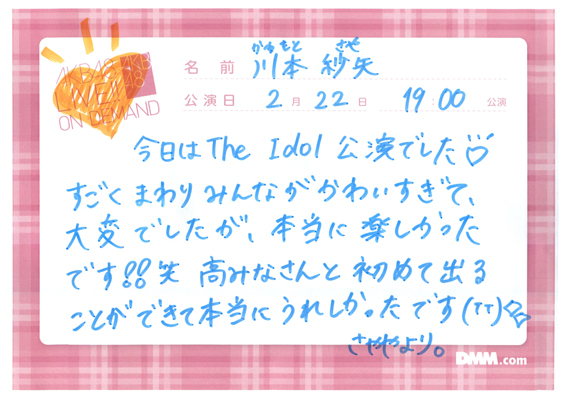 AKB48
LIVE!!
ON DEMAND
かわもと さや
名前 川本 紗矢
公演日 2月 22日 19:00 公演
今日は The Idol 公演でした
すごくまわりみんながかわいすぎて、
大変でしたが、本当に楽しかった
です!!笑 高みなさんと初めて出る
ことができて本当にうれしかったです(TT)
さややより。
DMM.com